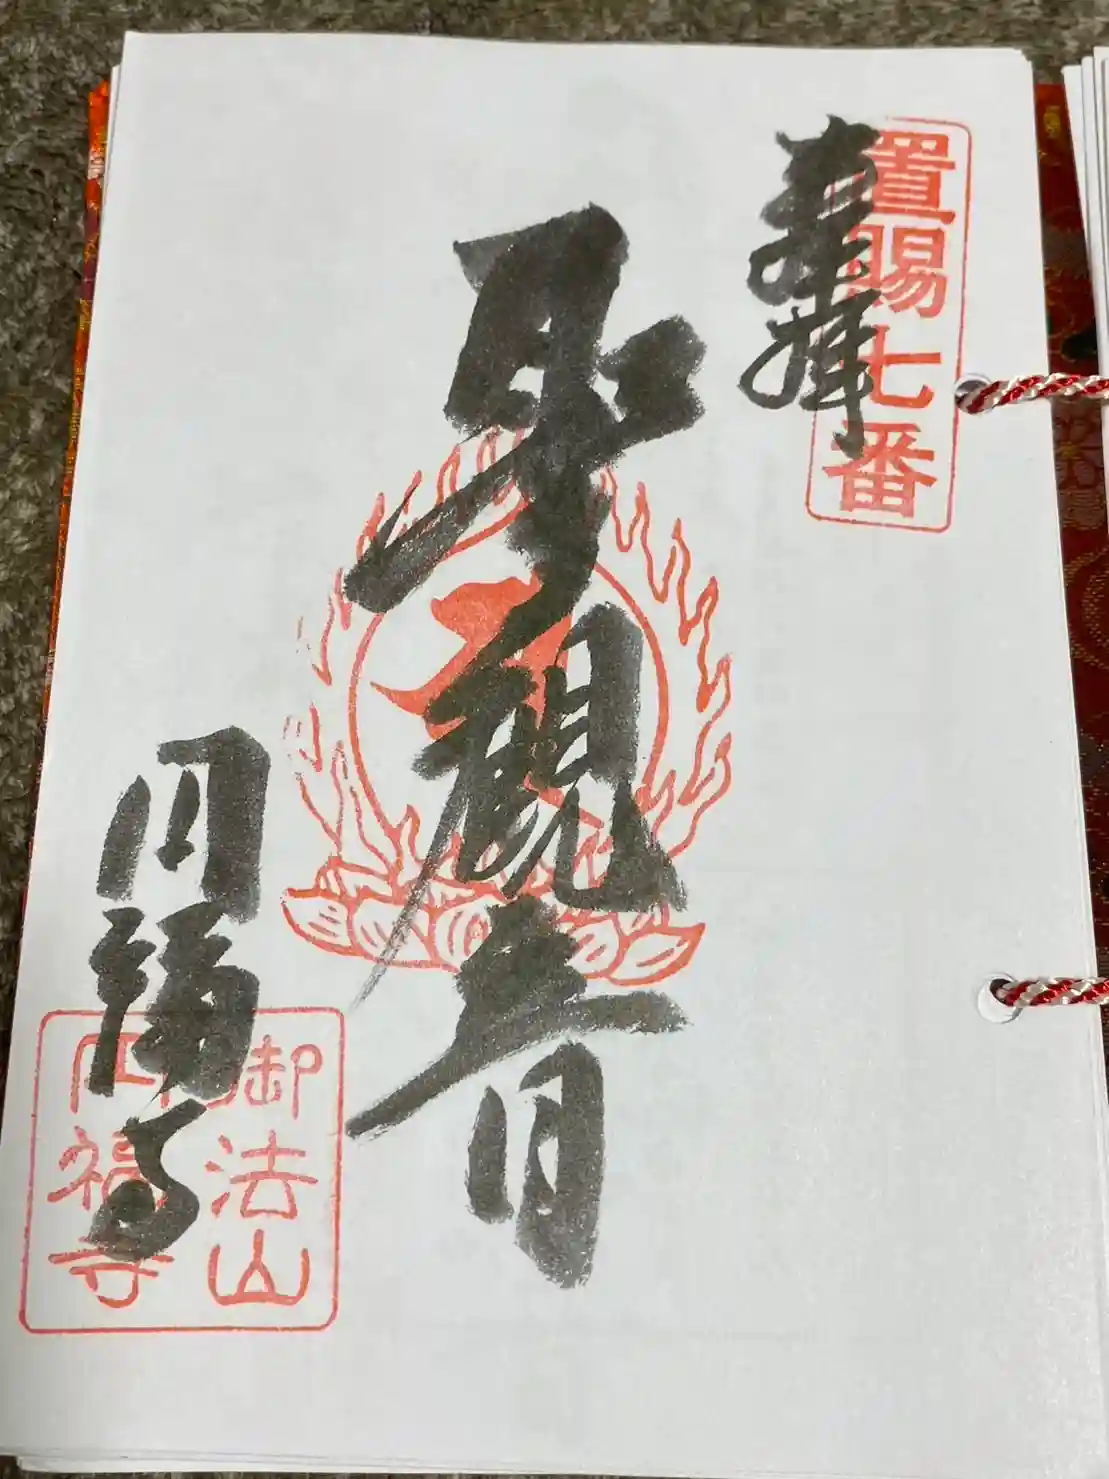 奉拝
置賜七番
聖観音
円福寺
御法山
円福寺